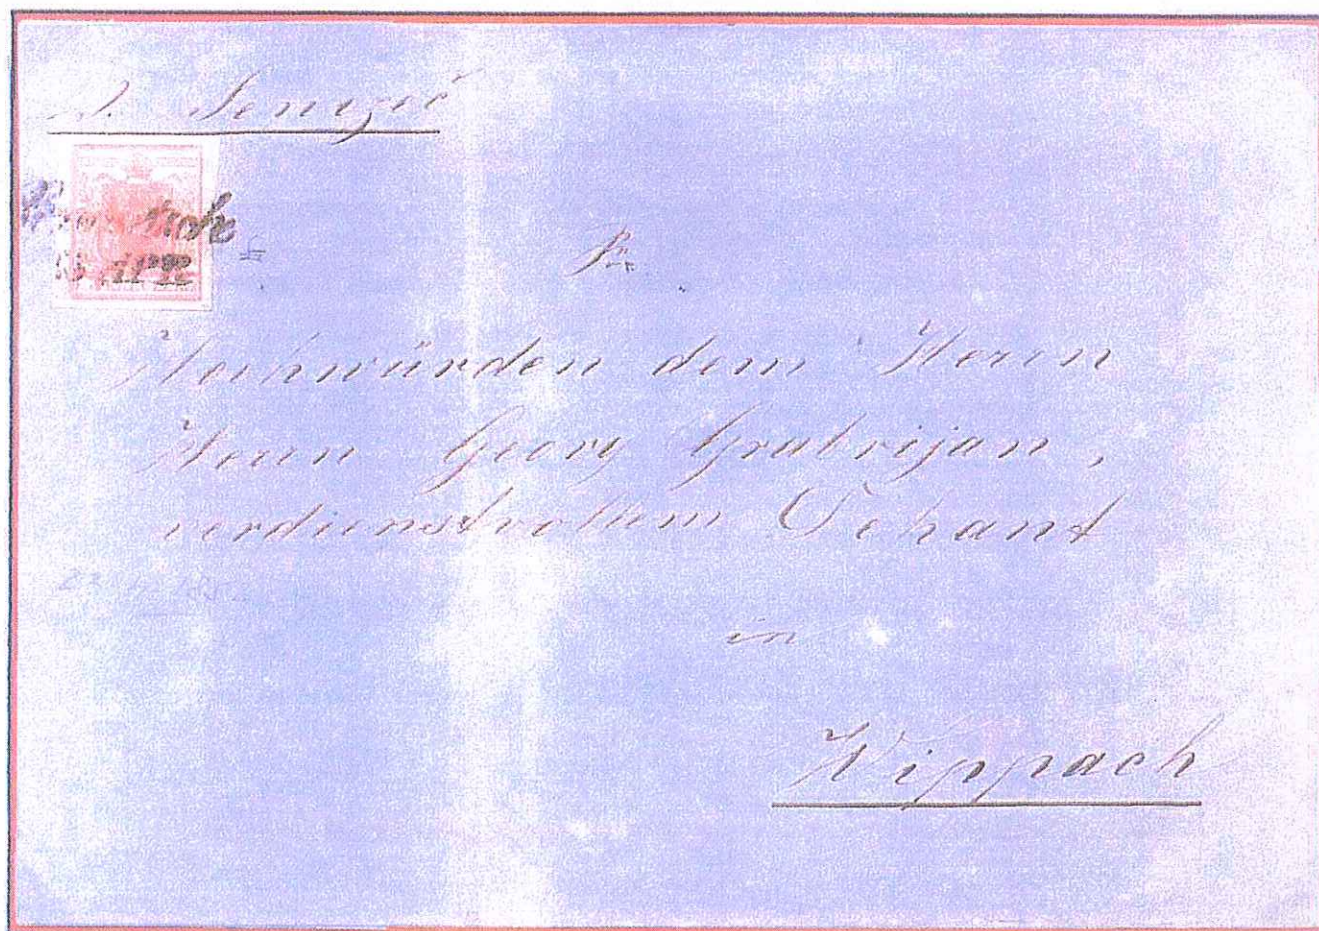 Senizić
Hochwürden dem Herrn
Herrn Georg Grabrijan,
verdienstvollem Dehant
in
Wippach